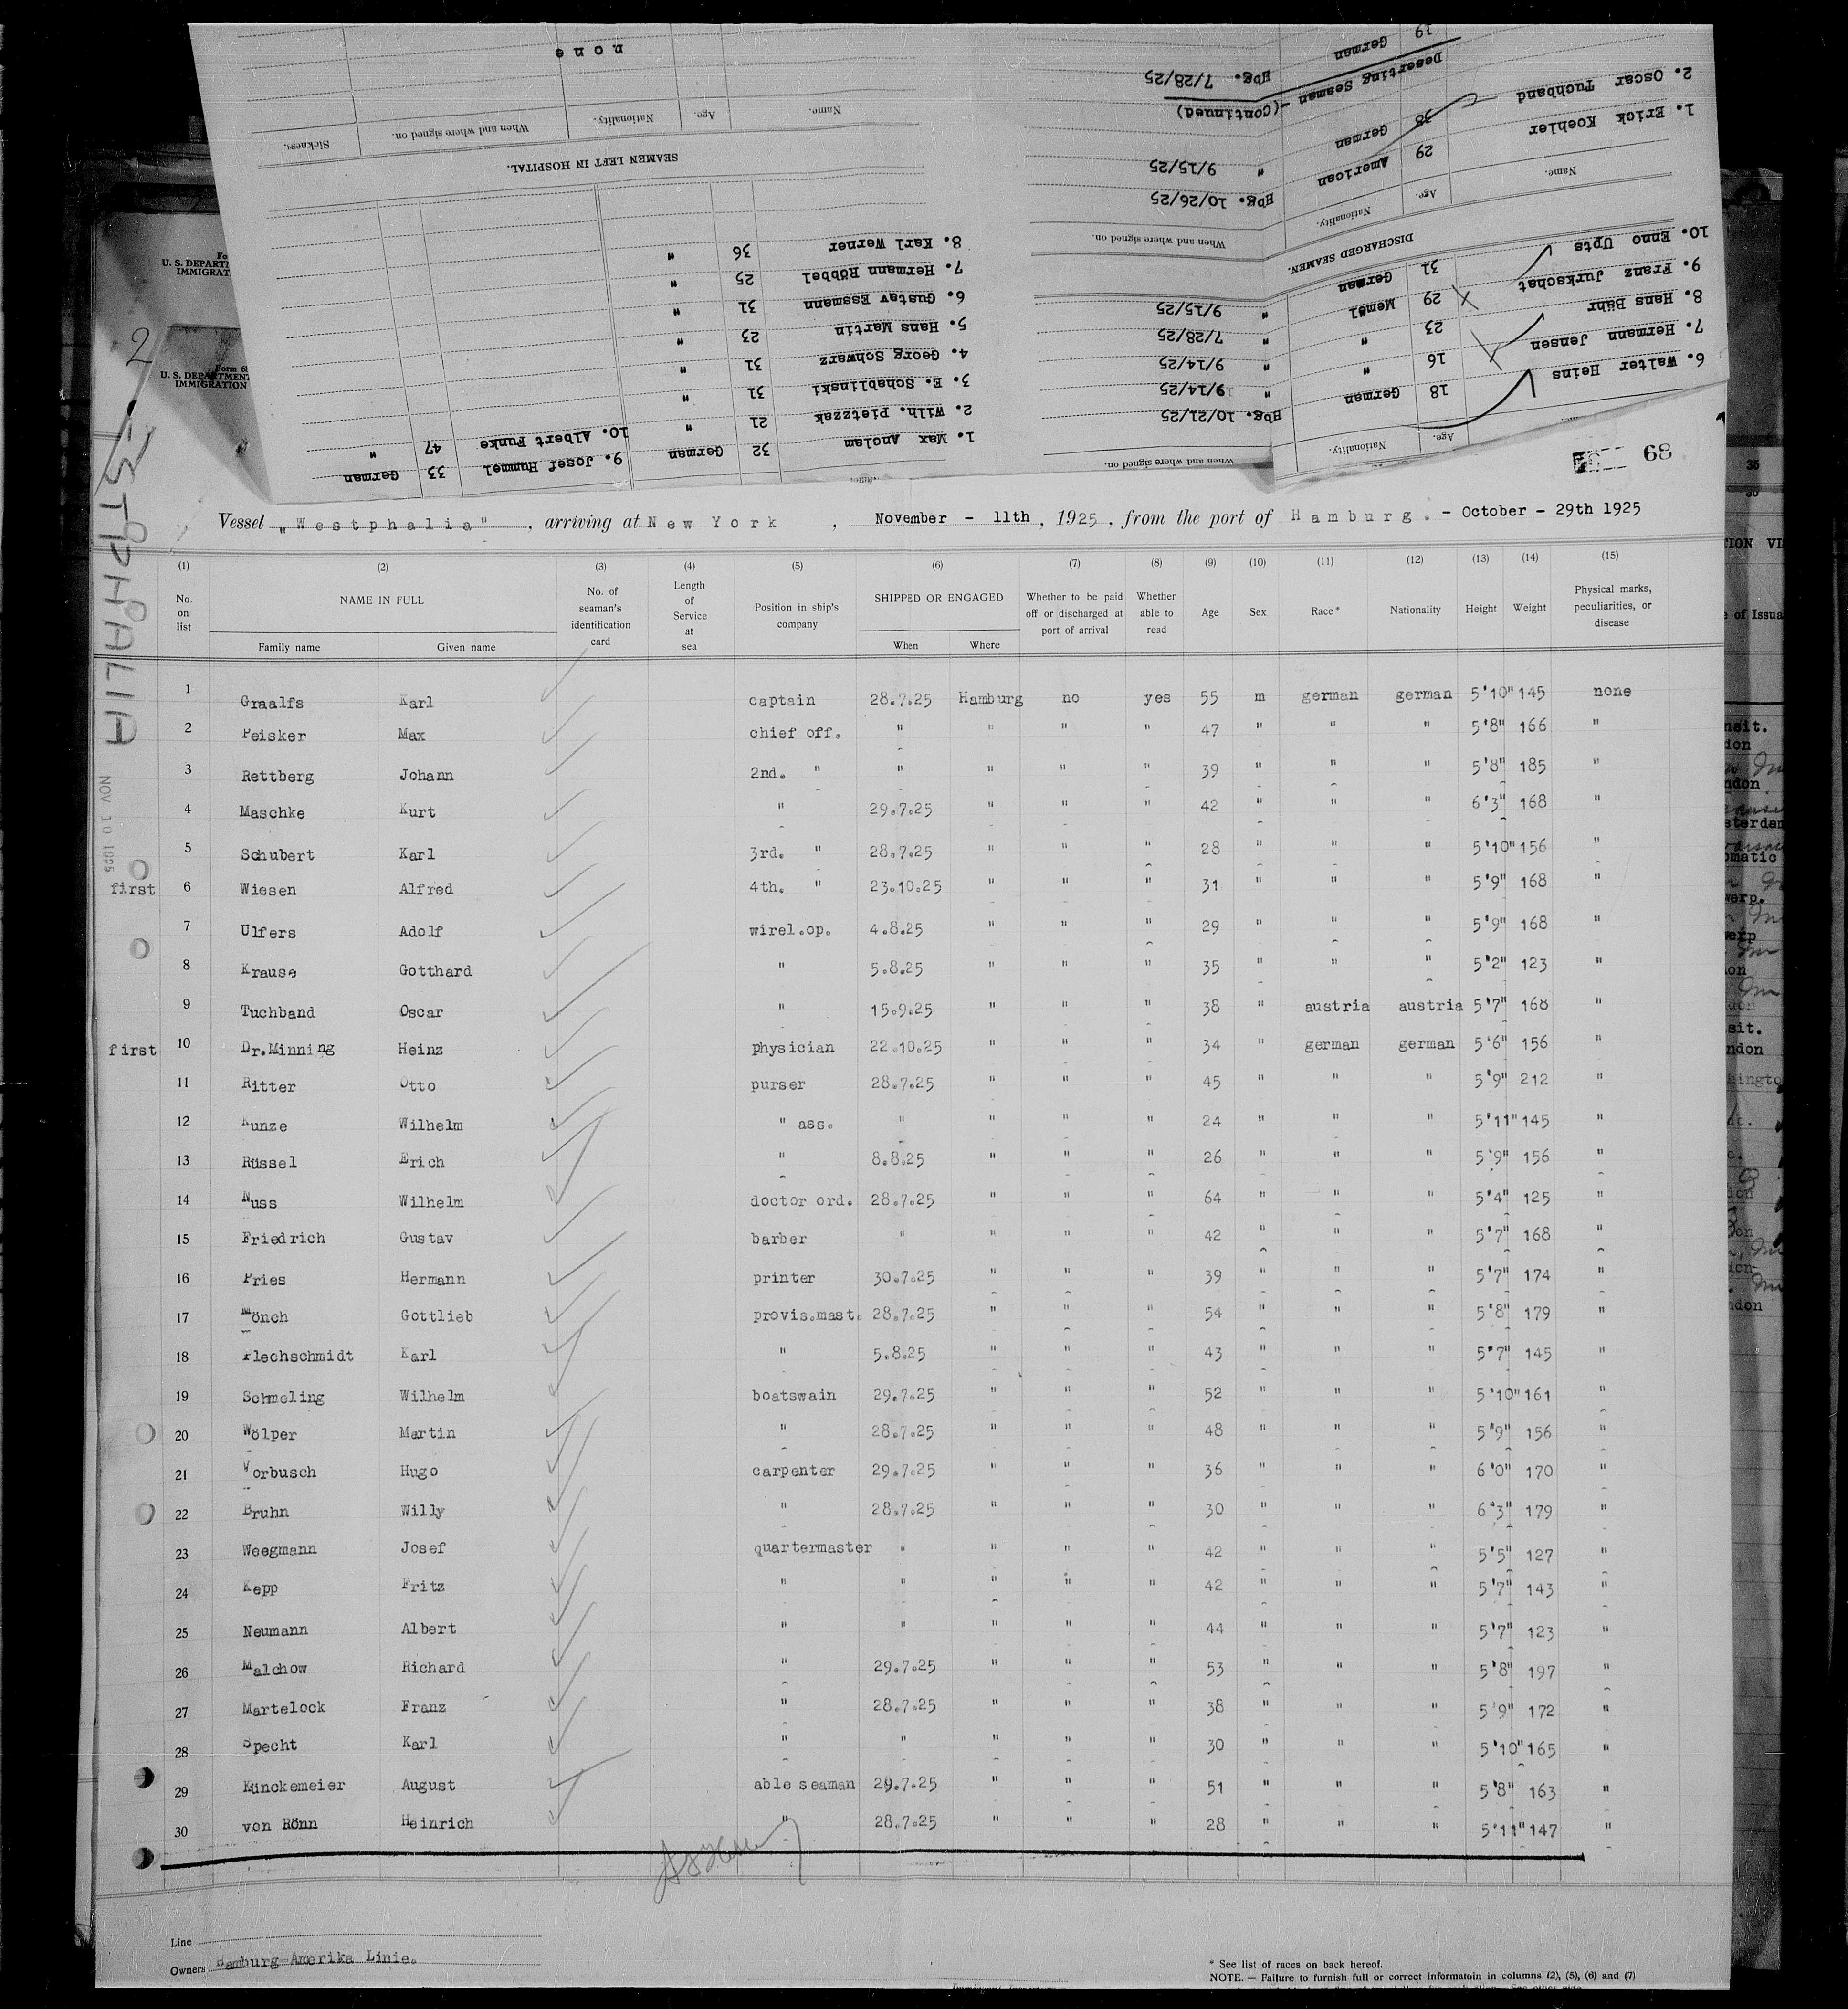 none
Name. Age. Nationality. When and where signed on. Sickness.
SEAMEN LEFT IN HOSPITAL.
8. Karl Werner 36 "
7. Hermann Röbbel 25 "
6. Gustav Essmann 31 "
5. Hans Martin 23 "
4. Georg Schwarz 31 "
3. E. Schablinski 31 "
2. Wilh. Pietzzak 21 "
1. Max Anclam 32 German
10. Albert Funke 47 "
9. Josef Hummel 33 German
19 German Hbg. 7/28/25
Deserting Seaman -(continued)
2. Oscar Tuchband 38 German " 9/15/25
1. Erick Koehler 29 American Hbg. 10/26/25
Name. Age. Nationality. When and where signed on.
DISCHARGED SEAMEN.
10. Enno Upts 31 German " 9/15/25
9. Franz Jurkschat 29 Memel " 7/28/25
8. Hans Bähr 23 " " 9/14/25
7. Hermann Jensen 16 " " 9/14/25
6. Walter Heins 18 German Hbg. 10/21/25
Age. Nationality. When and where signed on.
68
U. S. DEPART
IMMIGRAT
2
Form 68
U. S. DEPARTMENT
IMMIGRATION
WESTPHALIA
NOV 10 1925
Vessel "Westphalia", arriving at New York, November - 11th, 1925, from the port of Hamburg. - October - 29th 1925
(1) (2) (3) (4) (5) (6) (7) (8) (9) (10) (11) (12) (13) (14) (15)
No. on list NAME IN FULL No. of seaman's identification card Length of Service at sea Position in ship's company SHIPPED OR ENGAGED Whether to be paid off or discharged at port of arrival Whether able to read Age Sex Race* Nationality Height Weight Physical marks, peculiarities, or disease
Family name Given name When Where
1 Graalfs Karl captain 28.7.25 Hamburg no yes 55 m german german 5'10" 145 none
2 Peisker Max chief off. " " " " 47 " " " 5'8" 166 "
3 Rettberg Johann 2nd. " " " " " 39 " " " 5'8" 185 "
4 Maschke Kurt " 29.7.25 " " " 42 " " " 6'3" 168 "
5 Schubert Karl 3rd. " 28.7.25 " " " 28 " " " 5'10" 156 "
first 6 Wiesen Alfred 4th. " 23.10.25 " " " 31 " " " 5'9" 168 "
7 Ulfers Adolf wirel.op. 4.8.25 " " " 29 " " " 5'9" 168 "
8 Krause Gotthard " 5.8.25 " " " 35 " " " 5'2" 123 "
9 Tuchband Oscar " 15.9.25 " " " 38 " austria austria 5'7" 168 "
first 10 Dr.Minning Heinz physician 22.10.25 " " " 34 " german german 5'6" 156 "
11 Ritter Otto purser 28.7.25 " " " 45 " " " 5'9" 212 "
12 Kunze Wilhelm " ass. " " " " 24 " " " 5'11" 145 "
13 Rüssel Erich " 8.8.25 " " " 26 " " " 5'9" 156 "
14 Nuss Wilhelm doctor ord. 28.7.25 " " " 64 " " " 5'4" 125 "
15 Friedrich Gustav barber " " " " 42 " " " 5'7" 168 "
16 Pries Hermann printer 30.7.25 " " " 39 " " " 5'7" 174 "
17 Mönch Gottlieb provis.mast. 28.7.25 " " " 54 " " " 5'8" 179 "
18 Flechschmidt Karl " 5.8.25 " " " 43 " " " 5'7" 145 "
19 Schmeling Wilhelm boatswain 29.7.25 " " " 52 " " " 5'10" 161 "
20 Wölper Martin " 28.7.25 " " " 48 " " " 5'9" 156 "
21 Vorbusch Hugo carpenter 29.7.25 " " " 36 " " " 6'0" 170 "
22 Bruhn Willy " 28.7.25 " " " 30 " " " 6'3" 179 "
23 Weegmann Josef quartermaster " " " " 42 " " " 5'5" 127 "
24 Kepp Fritz " " " " " 42 " " " 5'7" 143 "
25 Neumann Albert " " " " " 44 " " " 5'7" 123 "
26 Malchow Richard " 29.7.25 " " " 53 " " " 5'8" 197 "
27 Martelock Franz " 28.7.25 " " " 38 " " " 5'9" 172 "
28 Specht Karl " " " " " 30 " " " 5'10" 165 "
29 Künckemeier August able seaman 29.7.25 " " " 51 " " " 5'8" 163 "
30 von Rönn Heinrich " 28.7.25 " " " 28 " " " 5'11" 147 "
Line
Owners Hamburg-Amerika Linie.
* See list of races on back hereof.
NOTE. — Failure to furnish full or correct informatoin in columns (2), (5), (6) and (7)